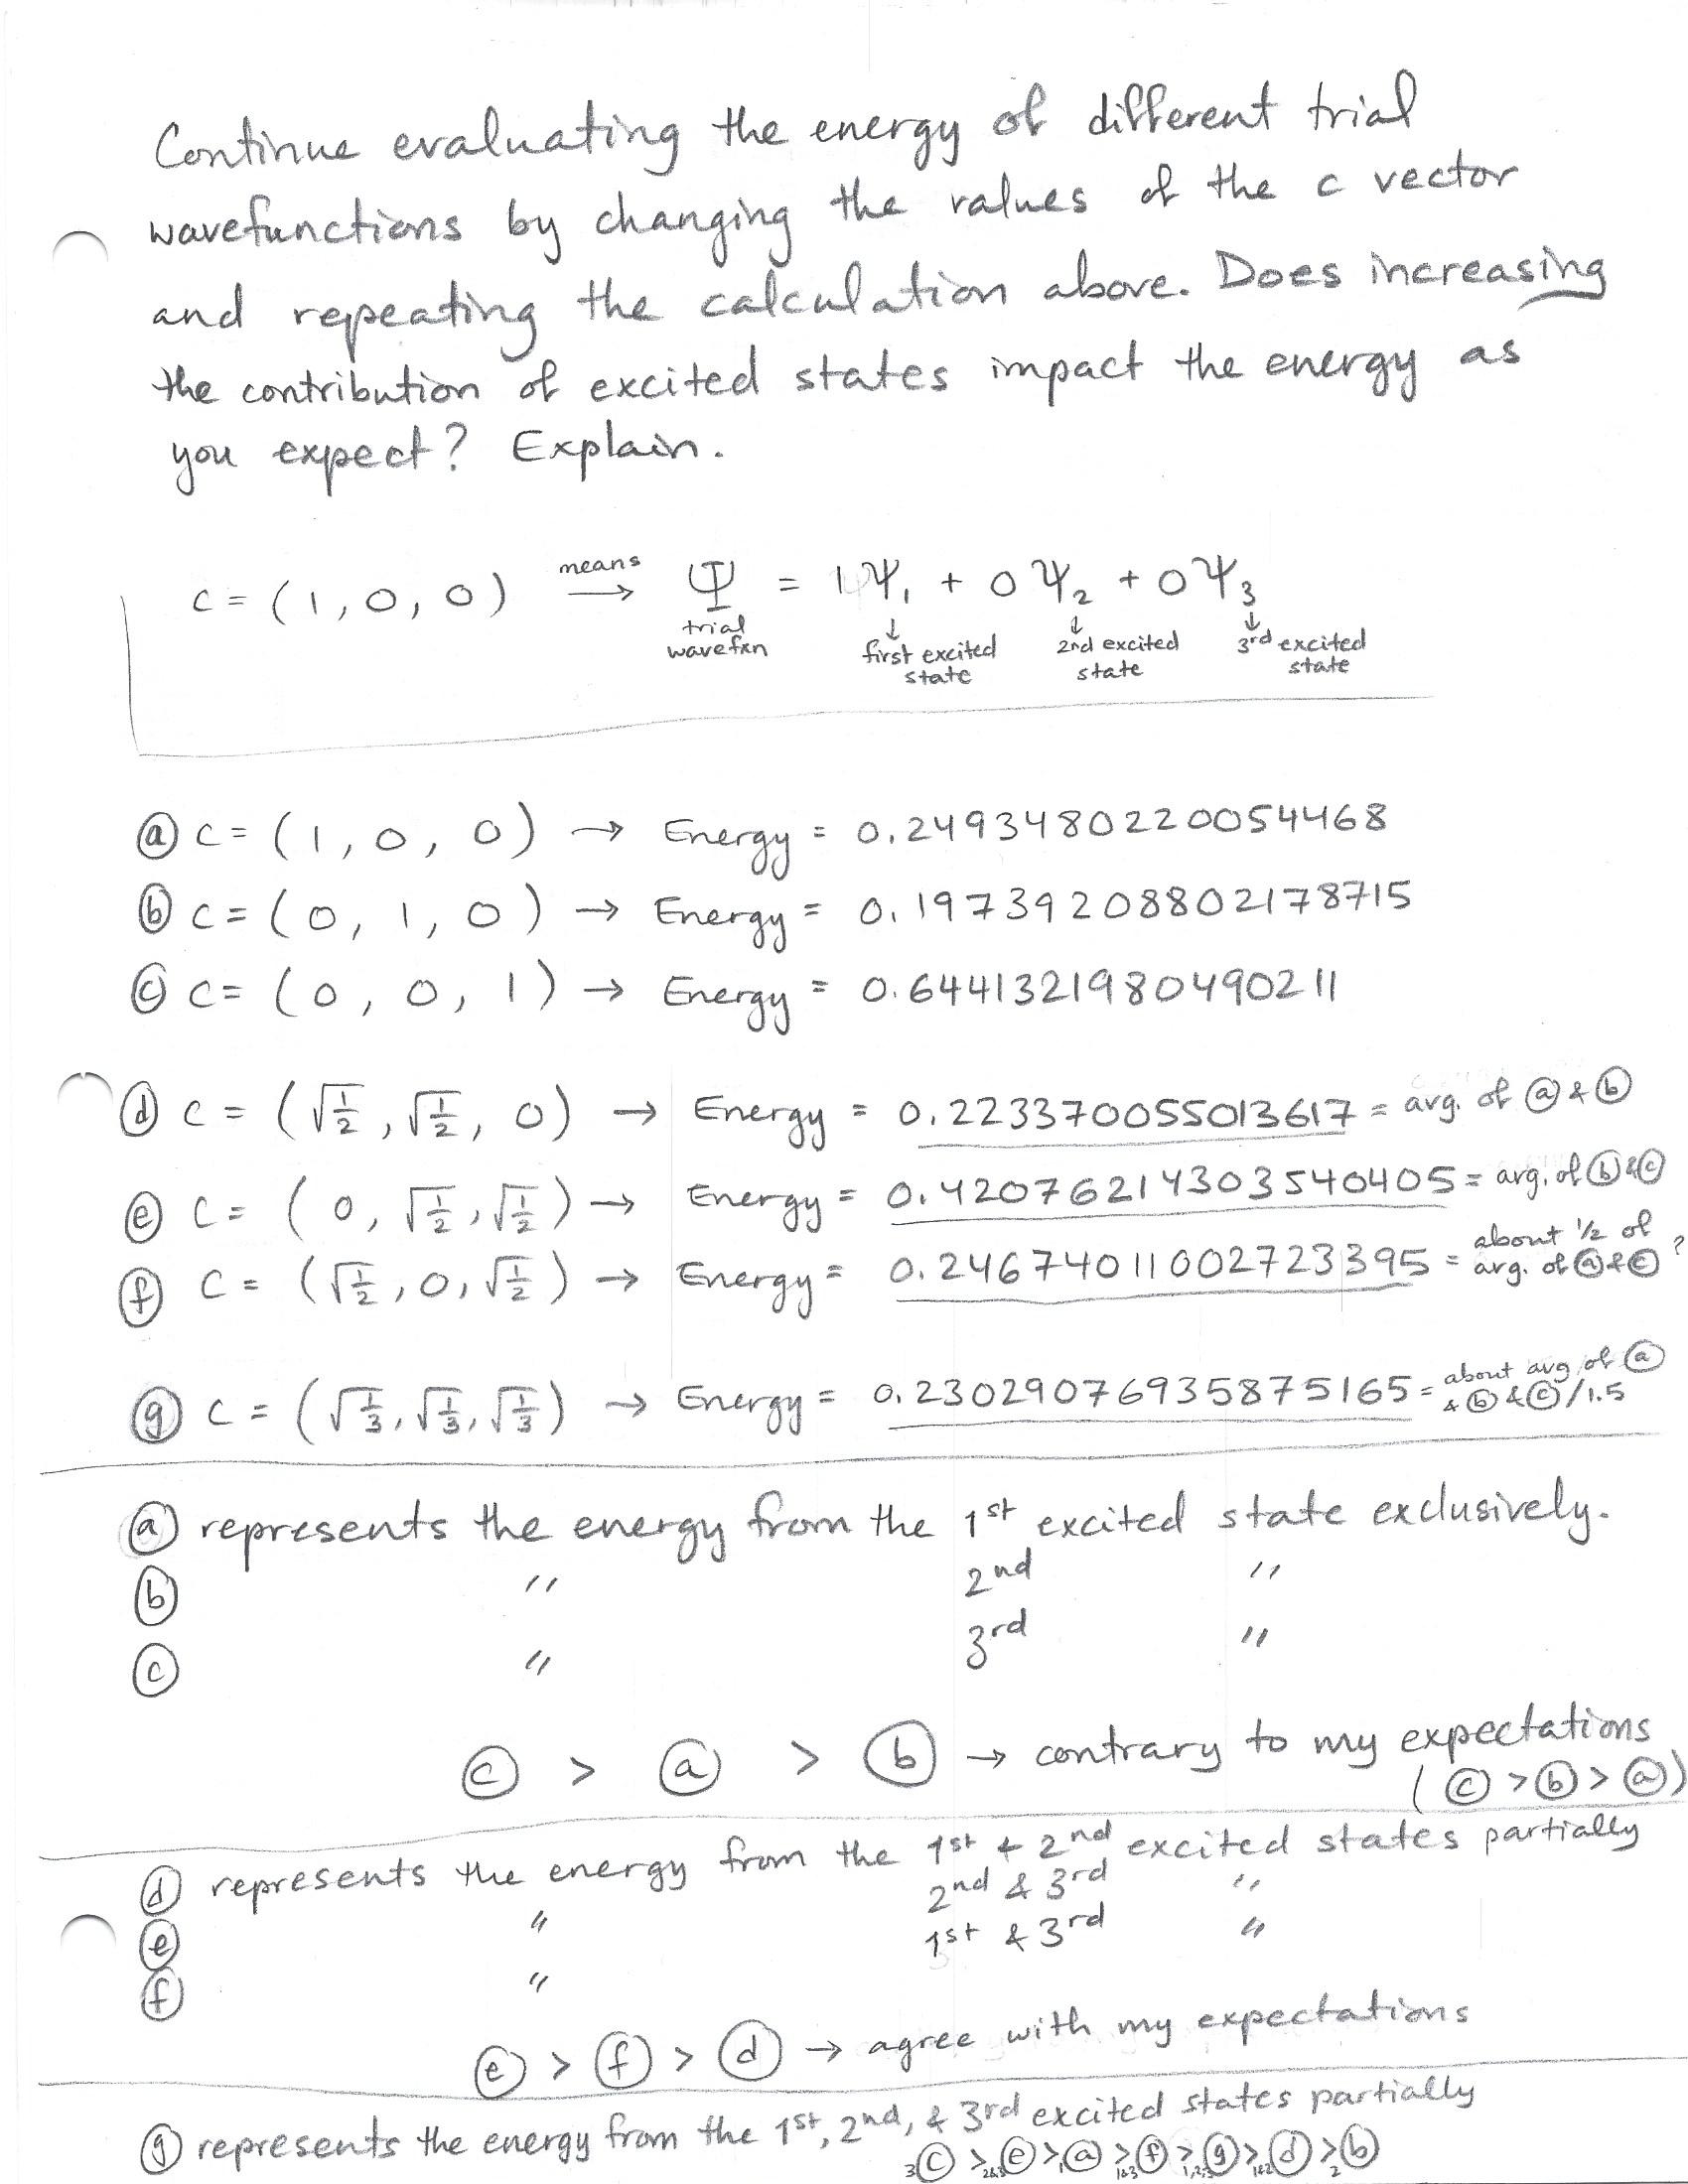 Continue evaluating the energy of different trial
wavefunctions by changing the values of the c vector
and repeating the calculation above. Does increasing
the contribution of excited states impact the energy as
you expect? Explain.
c = (1, 0, 0) means → Ψ = 1Ψ₁ + 0Ψ₂ + 0Ψ₃
trial wavefxn ↓ first excited state ↓ 2nd excited state ↓ 3rd excited state
ⓐ c = (1, 0, 0) → Energy = 0.2493480220054468
ⓑ c = (0, 1, 0) → Energy = 0.19739208802178715
ⓒ c = (0, 0, 1) → Energy = 0.6441321980490211
ⓓ c = (√½, √½, 0) → Energy = 0.223370055013617 = avg. of ⓐ & ⓑ
ⓔ c = (0, √½, √½) → Energy = 0.42076214303540405 = avg. of ⓑ & ⓒ
ⓕ c = (√½, 0, √½) → Energy = 0.24674011002723395 = about ½ of avg. of ⓐ & ⓒ ?
ⓖ c = (√⅓, √⅓, √⅓) → Energy = 0.23029076935875165 = about avg of ⓐ & ⓑ & ⓒ/1.5
ⓐ represents the energy from the 1st excited state exclusively.
ⓑ " 2nd "
ⓒ " 3rd "
ⓒ > ⓐ > ⓑ → contrary to my expectations
(ⓒ > ⓑ > ⓐ)
ⓓ represents the energy from the 1st & 2nd excited states partially
ⓔ " 2nd & 3rd "
ⓕ " 1st & 3rd "
ⓔ > ⓕ > ⓓ → agree with my expectations
ⓖ represents the energy from the 1st, 2nd, & 3rd excited states partially
3 ⓒ > 2&3 ⓔ > 1 ⓐ > 1&3 ⓕ > 1,2,3 ⓖ > 1&2 ⓓ > 2 ⓑ